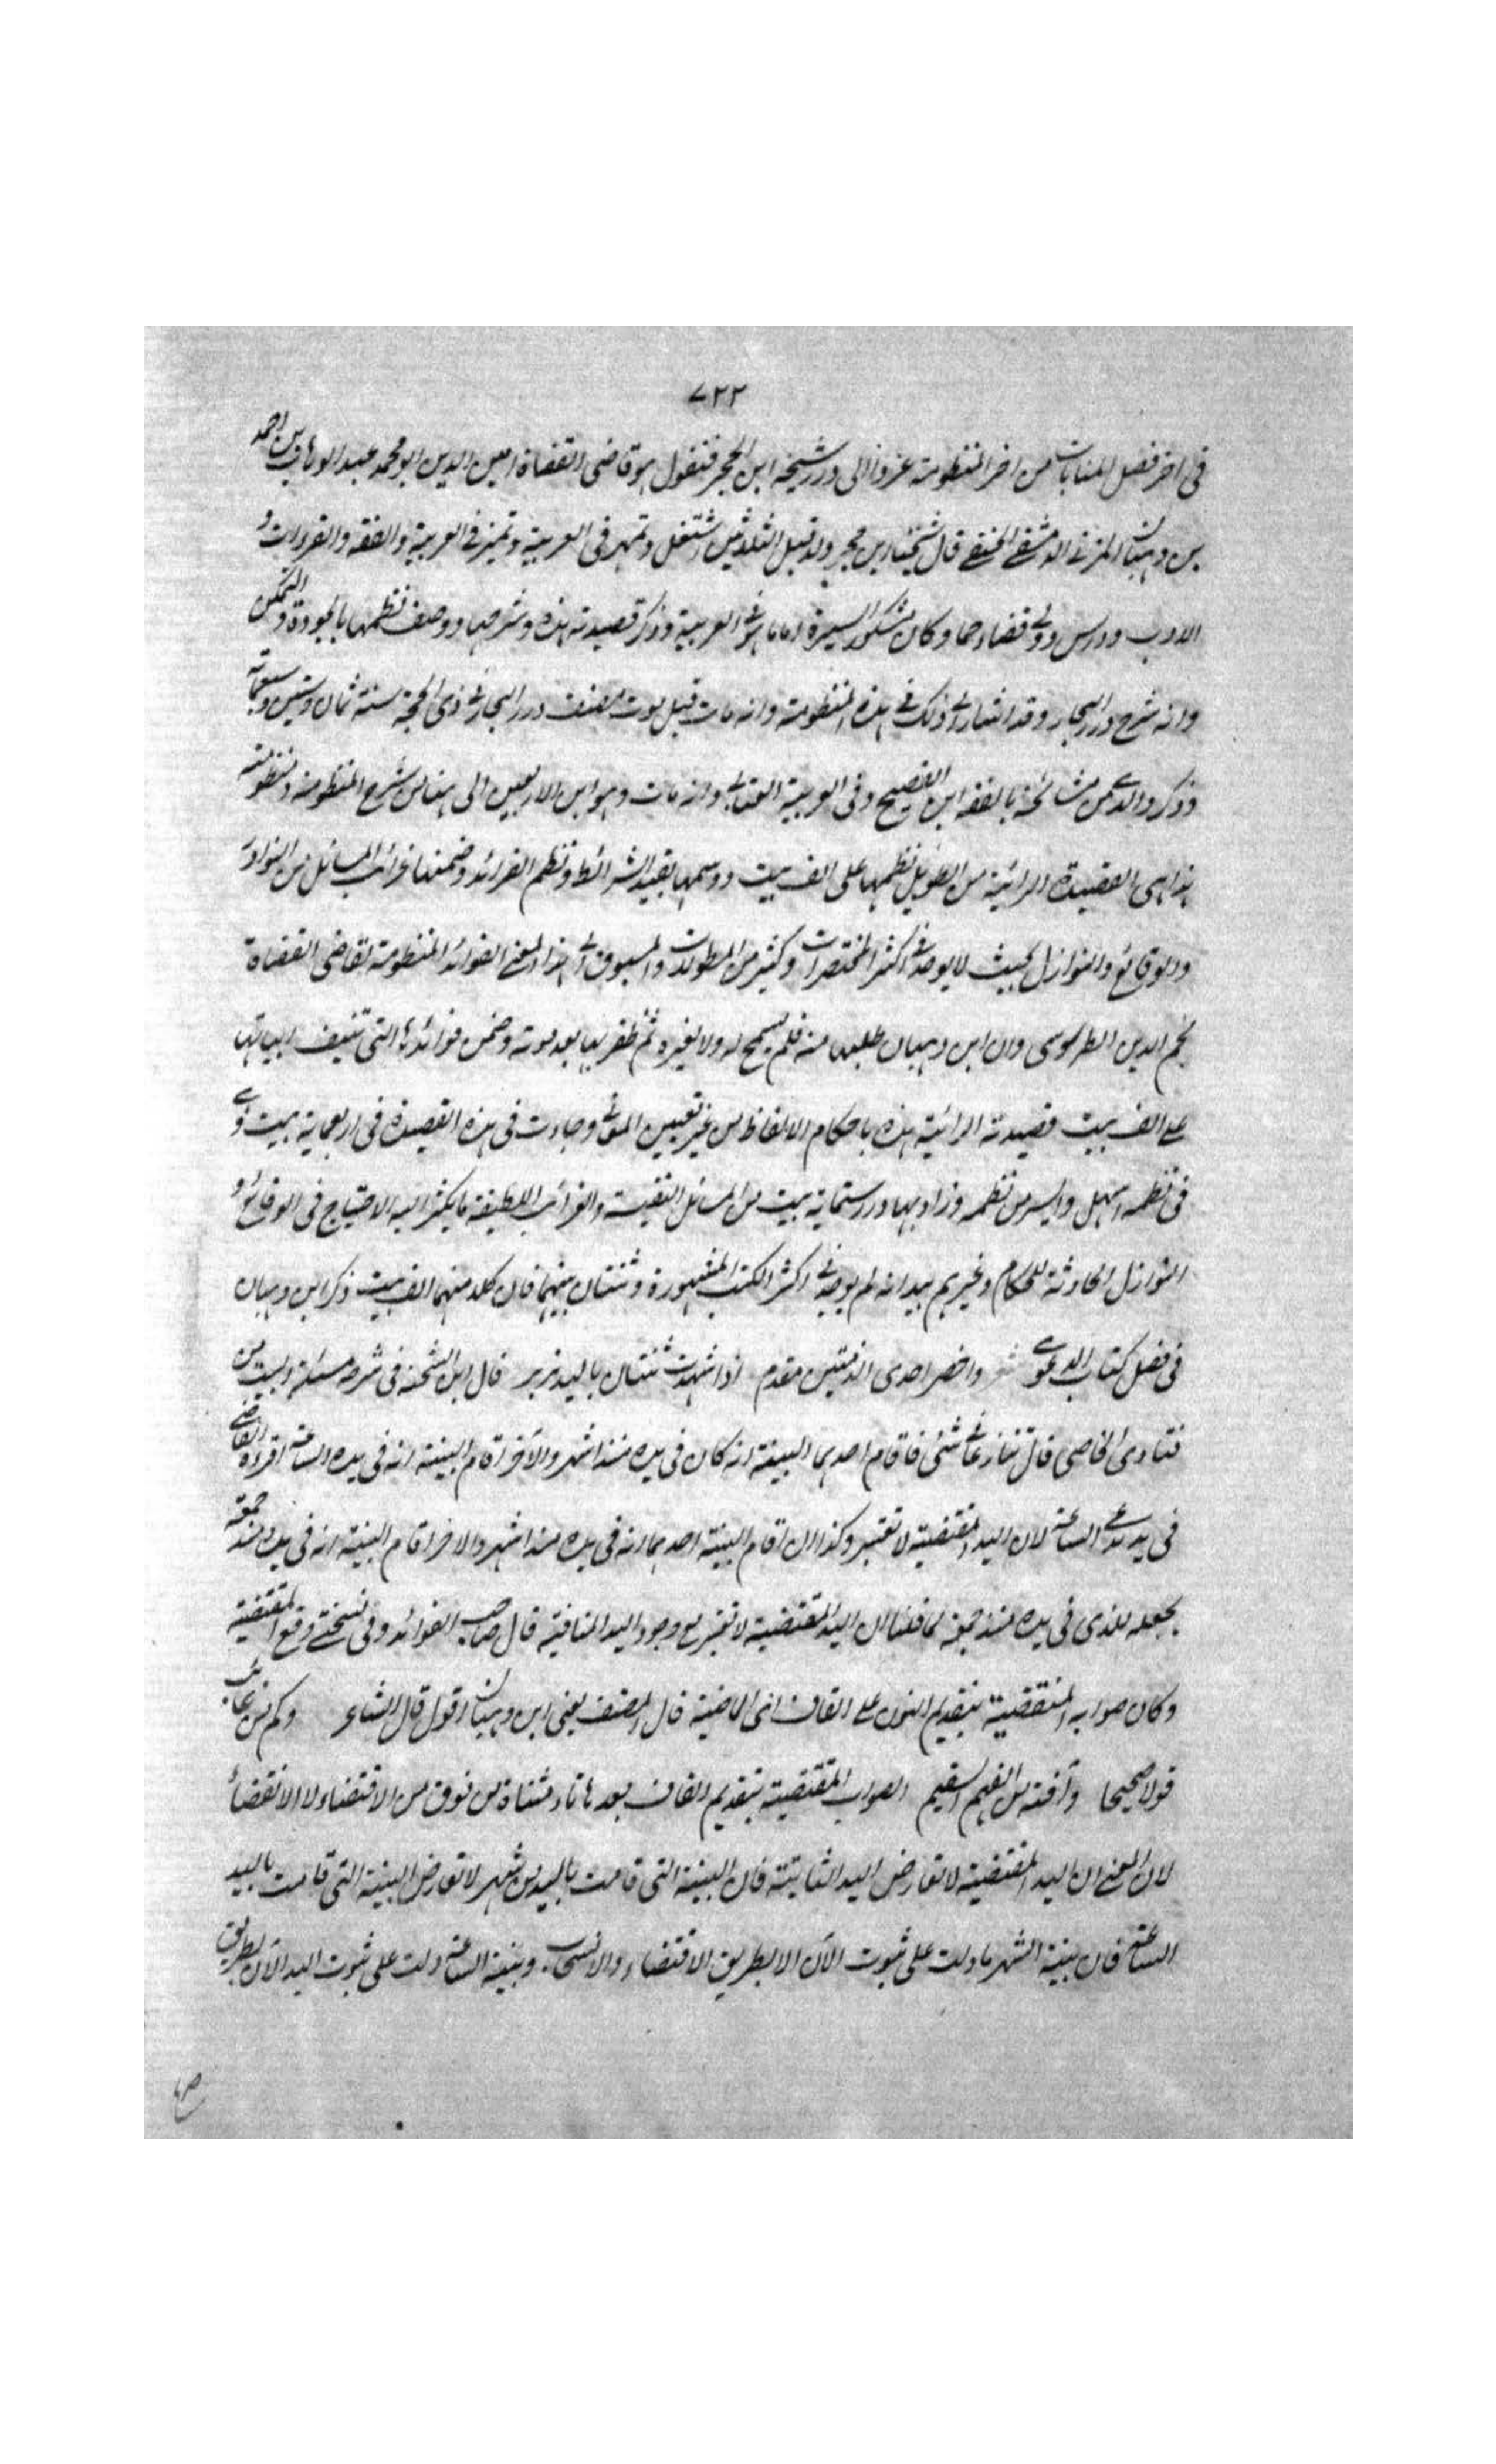 ٧٢٢
فى اخر فصل المنايات من اخر المنظومة عزوا الى درر شيخه ابن الحجر فنقول هو قاضى القضاة امين الدين ابو محمد عبد الوهاب بن احمد
بن وهبان المزنى الدمشقى الحنفى قال شيخنا ابن حجر ولد قبل الثلاثين اشتغل وتمهر فى العربية وتميز فى العربية والفقه والقراءات و
الادب ودرس وولى قضاء حماه وكان مشكور السيرة اماما فى العربية وذكر قصيدته هذه وشرحها ووصف نظمها بالجودة والتمكن
وانه شرح درر البحار وقد اشار الى ذلك فى هذه المنظومة وانه مات قبل موت مصنف درر البحار فى ذى الحجة سنة ثمان وستين وسبعمائة
وذكر والدى من مشائخه بالفقه ابن الفصيح وفى العربية العتابى وانه مات وهو ابن الاربعين الى هنا من شرح المنظومة ومنظومته
هذا هى القصيدة الرائية من الطويل نظمها على الف بيت ووسمها بقيد الشرائد ونظم الفرائد وضمنها غرائب المسائل من النوادر
والوقائع والنوازل بحيث لا يوجد فى اكثر المختصرات وكثير من المطولات والمسبوق الى هذا المعنى الفوائد المنظومة لقاضى القضاة
نجم الدين الطرسوسى وان ابن وهبان طلبها منه فلم يسمح له ولا لغيره ثم ظفر بها بعد موته وضمن فوائدها التى تنيف ابياتها
على الف بيت قصيدته الرائية هذه باحكام الالفاظ من غير تغيير المعنى وجاءت فى هذه القصيدة فى اربعماية بيت وراى
فى نظمه اسهل وايسر من نظمه وزاد بها درر ستماية بيت من المسائل النفيسة والغرائب اللطيفة ما يكثر اليه الاحتياج فى الوقائع و
النوازل الحادثة للحكام وغيرهم بيد انه لم يوجد فى اكثر الكتب المشهورة وشتان بينهما فان كلا منهما الف بيت ذكر ابن وهبان
فى فصل كتاب الدعوى واخصر احدى مقدم اذا شهدت ثنتان باليد قال ابن الشحنة فى شرحه مسئلة البيت من
فتاوى القاضى قال تنازعا فى شئ فاقام احدهما البينة انه كان فى يده منذ اشهر والآخر اقام البينة انه فى يده الساعة اقره القاضى
فى يد مدعى الساعة لان اليد المقتضية لا تعتبر وكذا ان اقام البينة احدهما انه فى يده منذ اشهر والاخر اقام البينة انه فى يده منذ جمعة
يجعله للذى فى يده منذ جمعة لما قلنا ان اليد المقتضية لا تعتبر مع وجود اليد المنافية قال صاحب الفوائد وفى نسختى وقع المقتضية
وكان صوابه المنقضية بتقديم النون على القاف اى الماضية قال المصنف يعنى ابن وهبان اقول قال الشاعر وكم من عائب
قولا صحيحا وآفته من الفهم السقيم الصواب المقتضية بتقديم القاف بعدها تاء مثناة من فوق من الاقتضاء لا الانقضاء
لان المعنى ان اليد المقتضية لا تعارض اليد الثابتة فان البينة التى قامت باليد من شهر لا تعارض البينة التى قامت باليد
الساعة فان بينة الشهر ما دلت على ثبوت الآن الا بطريق الاقتضاء والانسحاب وبينة الساعة دلت على ثبوت اليد الآن بطريق